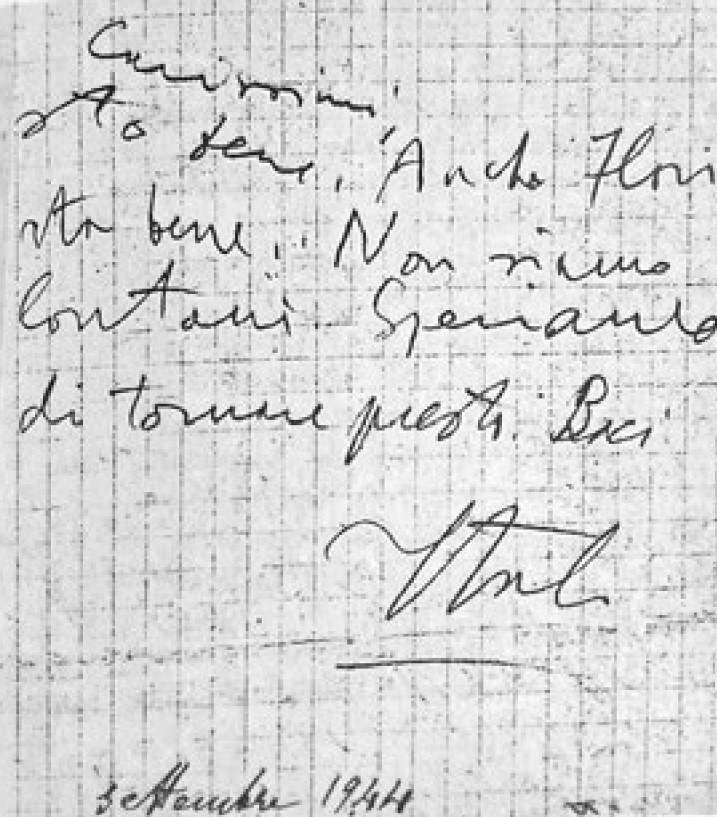 Carissimi,
sto bene. Anche Flori
sta bene. Non siamo
lontani. Speriamo
di tornare presto. Baci
Italo
settembre 1944